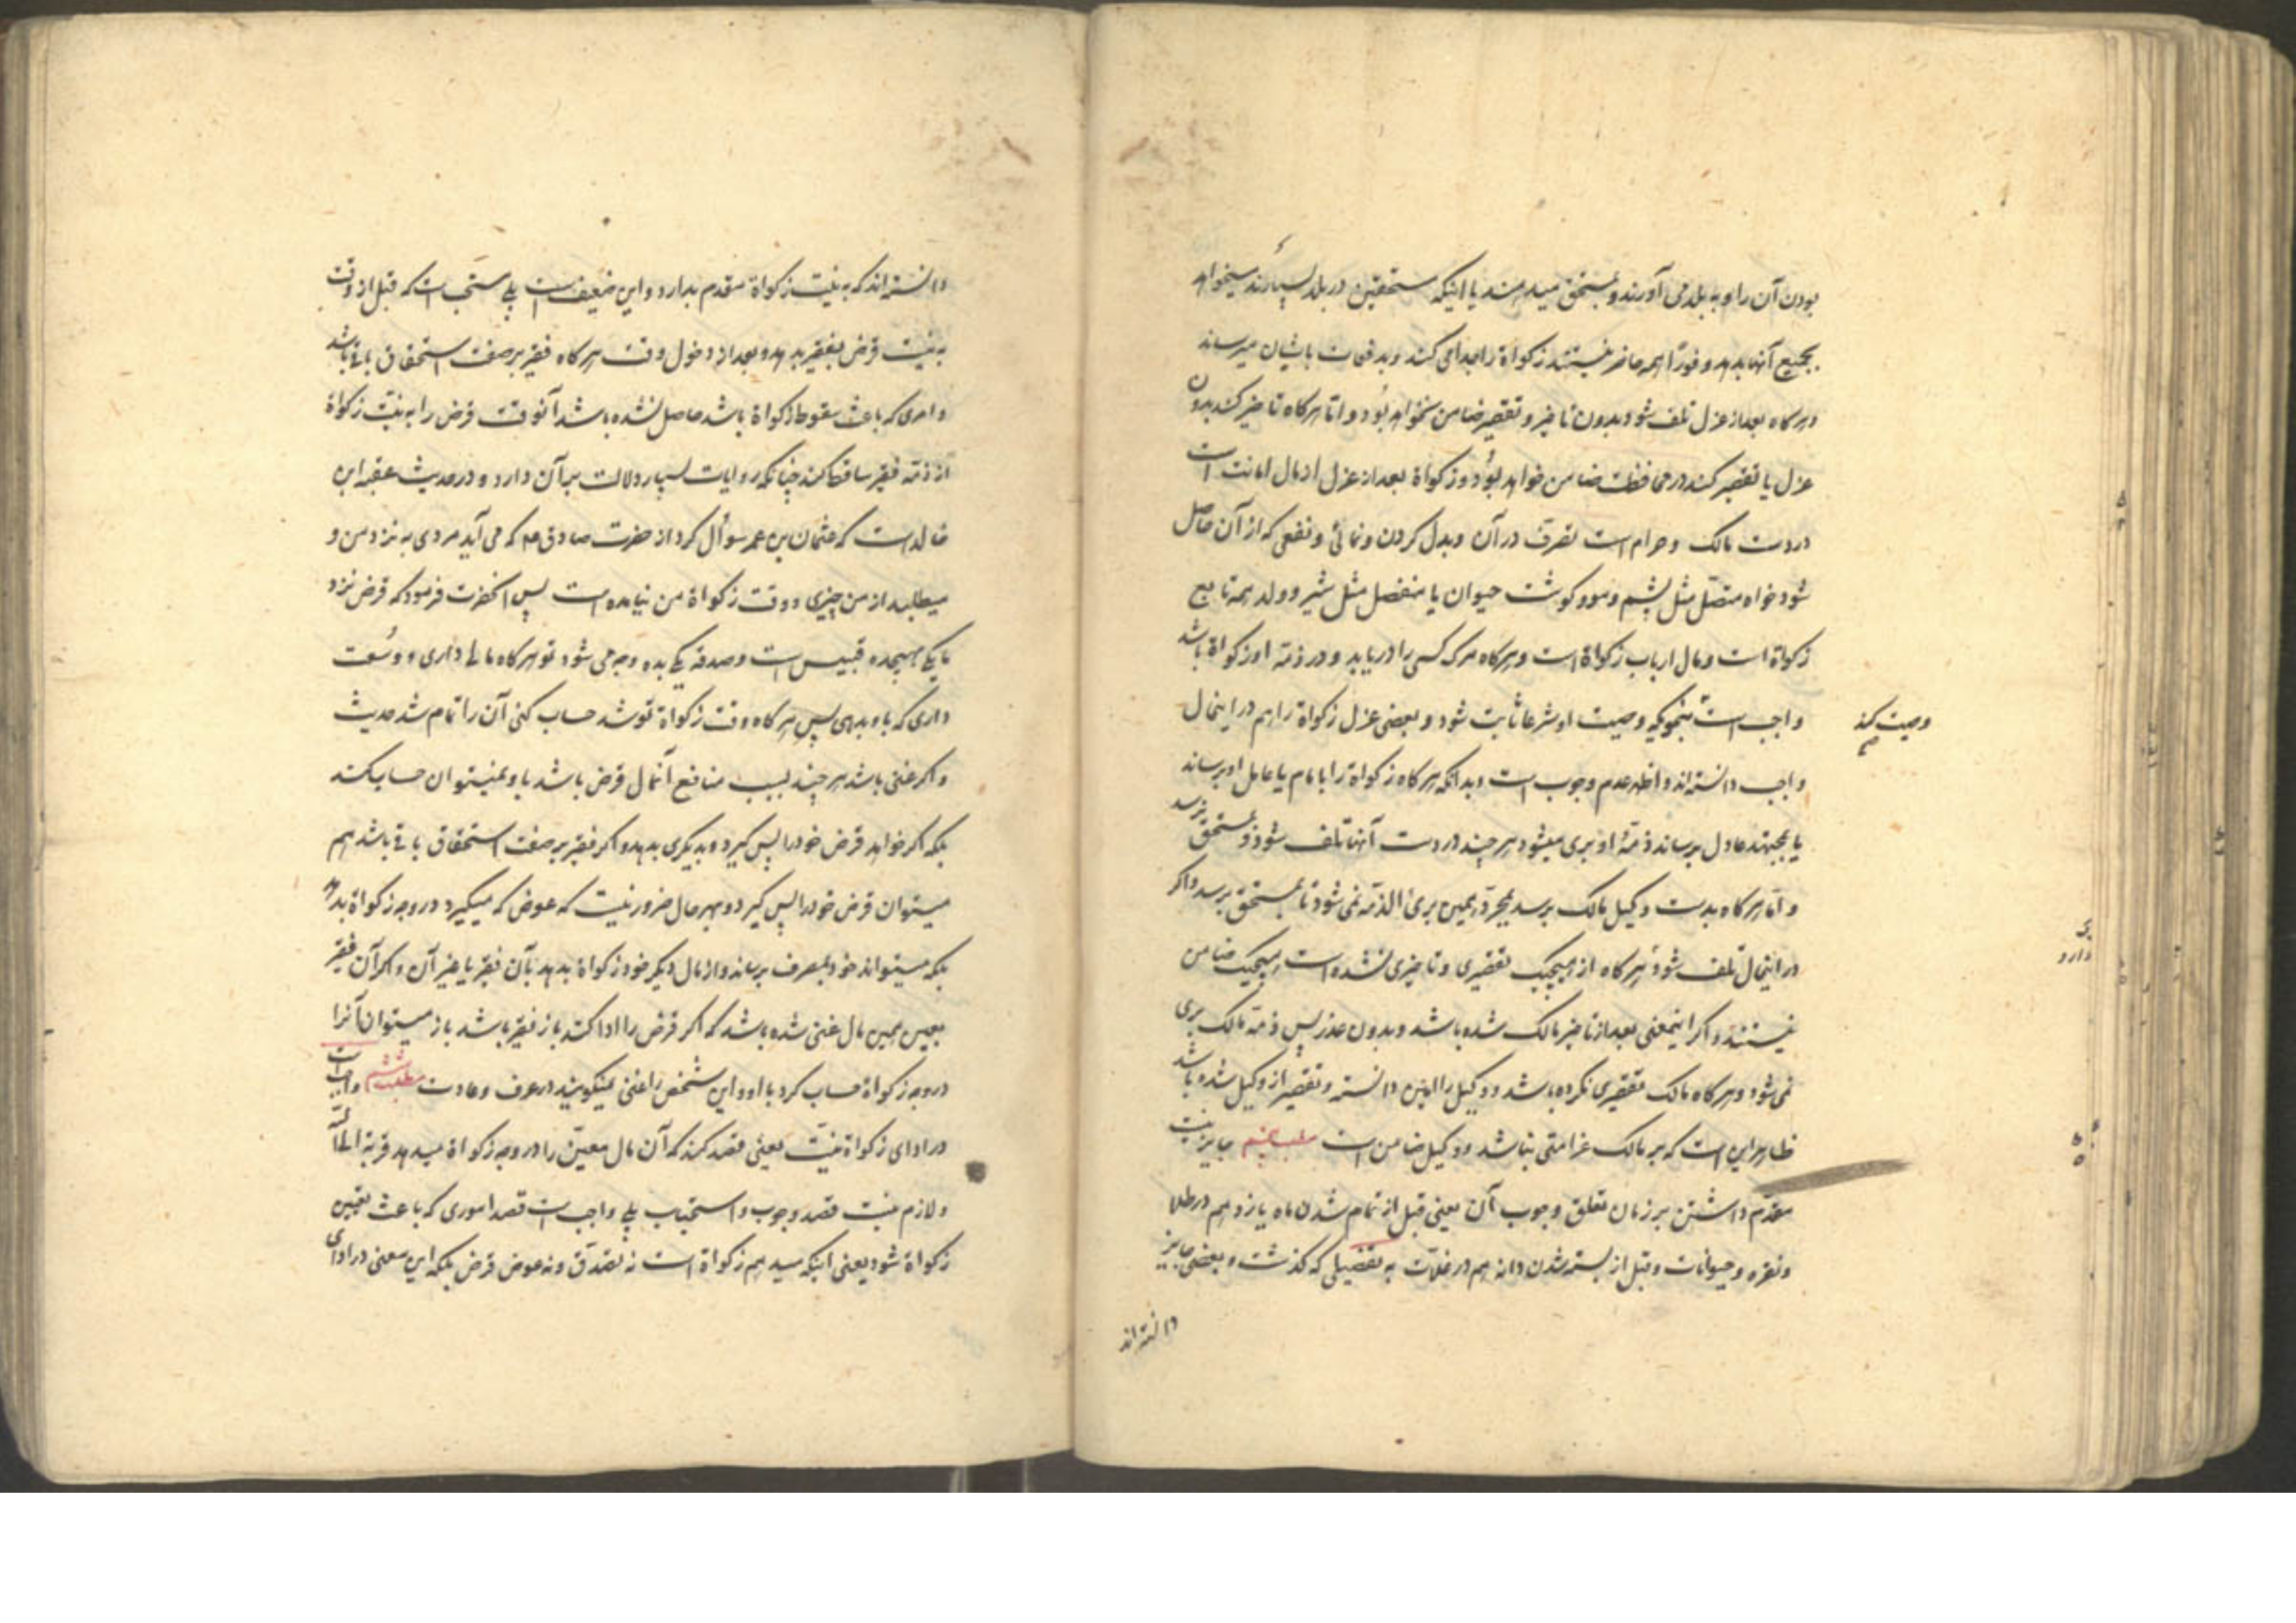 بودن آن را و به بلد می آورند و بمستحق میدهند یا اینکه مستحقین در بلد بسیارند میخواهد
بجمیع آنها بدهد و فوراً همه حاضر نیستند زکواة را جدا می کند و بدفعات بایشان میرساند
و هرگاه بعد از عزل تلف شود بدون تاخیر و تقصیر ضامن نخواهد بود و اما هرگاه تاخیر کند بدون
عزل یا تقصیر کند در محافظت ضامن خواهد بود و زکواة بعد از عزل از مال امانت است
در دست مالک و حرام است تصرف در آن و بدل کردن و نمائی و نفعی که از آن حاصل
شود خواه متصل مثل پشم و مو و گوشت حیوان یا منفصل مثل شیر و ولد همه تابع
زکواة است و مال ارباب زکواة است و هرگاه مرگ کسی را دریابد و در ذمه او زکواة باشد
واجب است بنحویکه وصیت او شرعا ثابت شود و بعضی عزل زکواة را هم در اینحال
وصیت کند
واجب دانسته اند و اظهر عدم وجوب است و بدانکه هرگاه زکواة را بامام یا عامل او برساند
یا بمجتهد عادل برساند ذمهٔ او بری میشود هر چند در دست آنها تلف شود و بمستحق نرسد
و اما هرگاه بدست وکیل مالک برسد بمجرد همین بری الذمه نمی شود تا بمستحق برسد و اگر
در اینحال تلف شود هرگاه از هیچیک تقصیری و تاخیری نشده است هیچیک ضامن
نیستند و اگر اینمعنی بعد از تاخیر مالک شده باشد و بدون عذر پس ذمه مالک بری
نمی شود و هرگاه مالک تقصیری نکرده باشد و وکیل را امین دانسته و تقصیر از وکیل شده باشد
ظاهر این است که بر مالک غرامتی نباشد و وکیل ضامن است مطلب پنجم جایز نیست
مقدم داشتن بر زمان تعلق وجوب آن یعنی قبل از تمام شدن ماه یازدهم در طلا
و نقره و حیوانات و قبل از بسته شدن دانه هم در غلات به تفضیلی که گذشت و بعضی جایز
دانسته اند
دانسته اند که به نیت زکواة مقدم بدارد و این ضعیف است بلی مستحب است که قبل از وقت
به نیت قرض بفقیر بدهد و بعد از دخول وقت هرگاه فقیر بر صفت استحقاق باقی باشد
و امری که باعث سقوط زکواة باشد حاصل نشده باشد آنوقت قرض را به نیت زکواة
از ذمه فقیر ساقط کند چنانکه روایات بسیار دلالت بر آن دارد و در حدیث عقبه ابن
خالد است که عثمان بن عمر سوأل کرد از حضرت صادق ع که می آید مردی به نزد من و
میطلبد از من چیزی و وقت زکواة من نیامده است پس آنحضرت فرمود که قرض نزد
ما یکی بهیجده قبیس است و صدقه یکی بده و چه می شود تو هرگاه مالی داری و وسعت
داری که باو بدهی پس هرگاه وقت زکواة تو شد حساب کنی آن را تمام شد حدیث
و اگر غنی باشد هر چند بسبب منافع آنمال قرض باشد باو نمیتوان حساب کند
بلکه اگر خواهد قرض خود را پس گیرد و بدیگری بدهد و اگر فقیر بر صفت استحقاق باقی باشد هم
میتوان قرض خود را پس گیرد و بهر حال ضرور نیست که عوض که میگیرد در وجه زکواة بدهد
بلکه میتواند خود بمصرف برساند و از مال دیگر خود زکواة بدهد بآن فقیر یا غیر آن و اگر آن فقیر
بعین همین مال غنی شده باشد که اگر قرض را ادا کند باز فقیر باشد باز میتوان آنرا
در وجه زکواة حساب کرد با او و این شخص را غنی نمیگویند در عرف و عادت مطلب ششم واجب است
در ادای زکواة نیت یعنی قصد کند که آن مال معین را در وجه زکواة میدهد قربة الی الله
و لازم نیست قصد وجوب و استحباب بلی واجب است قصد اموری که باعث تعیین
زکواة شود یعنی اینکه میدهم زکواة است نه تصدق و نه عوض قرض بلکه این معنی در ادای